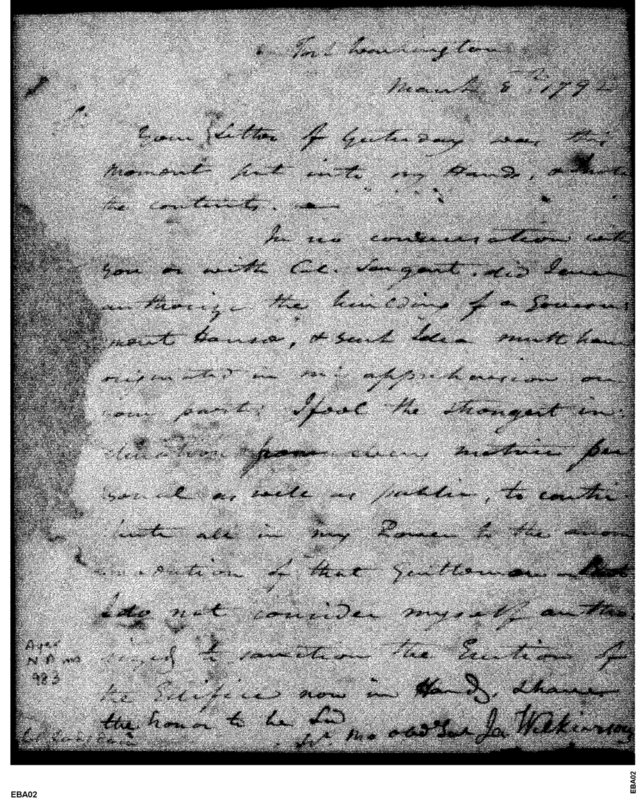 Fort Washington
March 8th 1792
Sir
Your Letter of Yesterday was this
moment put into my Hands, & note
the contents. —
In no conversation with
you or with Col. Sargent, did I ever
authorize the building of a Govern
ment House, & such Idea must have
originated in misapprehension on
your part; I feel the strongest in-
clination from every motive per
sonal as well as public, to contri-
bute all in my Power to the accom
modation of that Gentleman but
I do not consider myself autho
rized to sanction the Erection of
the Edifice now in Hand, I have
the honor to be Sir
Yr. Mo obd Sert Ja Wilkinson
Ayer
N A ms
983
EBA02
EBA02